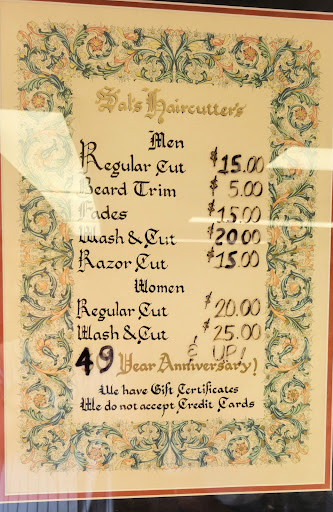 Sal's Haircutter's
Men
Regular Cut $15.00
Beard Trim $5.00
Fades $15.00
Wash & Cut $20.00
Razor Cut $15.00
Women
Regular Cut $20.00
Wash & Cut $25.00
& UP!
49 Year Anniversary!
We have Gift Certificates
We do not accept Credit Cards